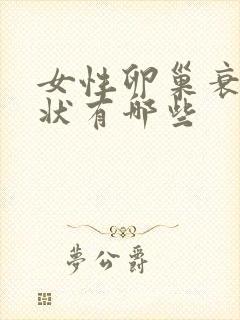 女性卵巢衰
状有哪些
夢公爵